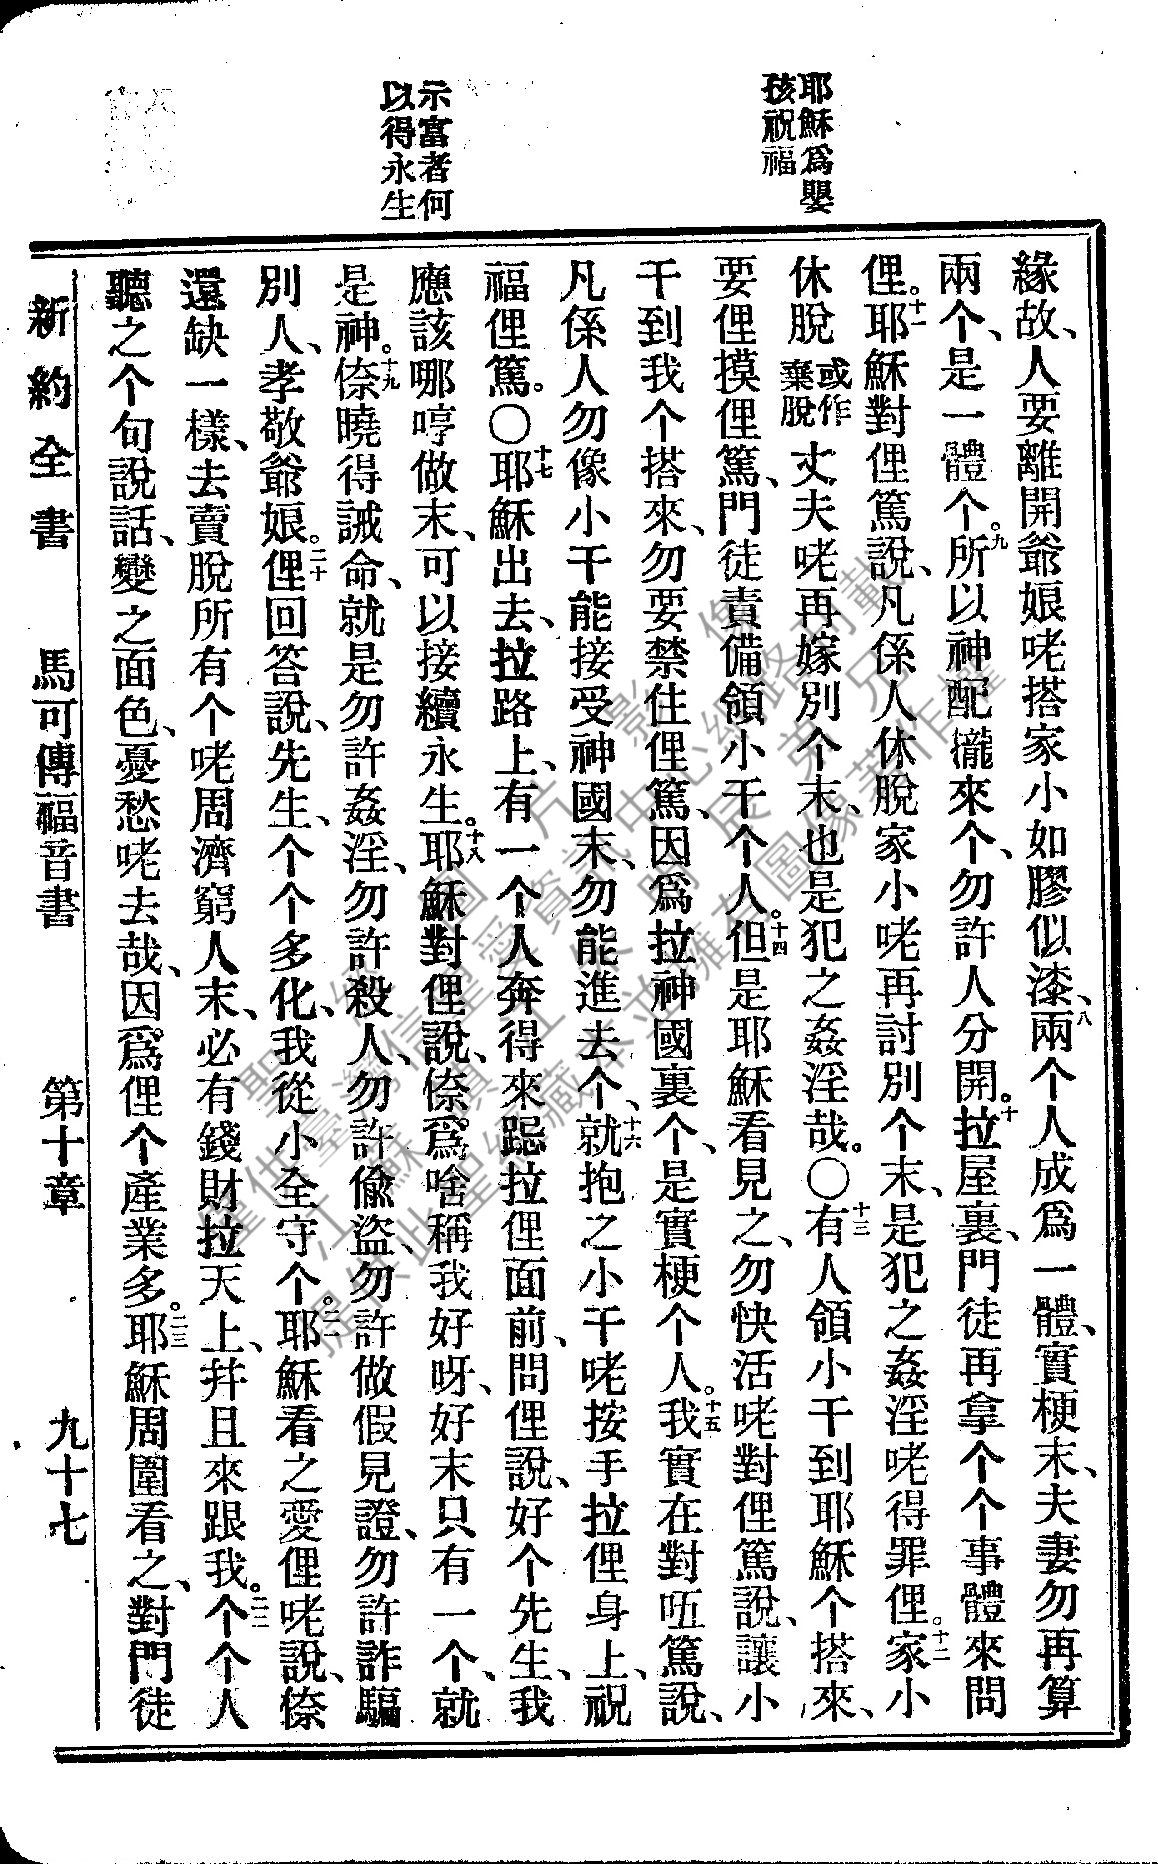 耶穌爲嬰
孩祝福
示富者何
以得永生
緣故、人要離開爺娘咾搭家小如膠似漆、八兩个人成爲一體、實梗末、夫妻勿再算
兩个、是一體个。九所以神配攏來个、勿許人分開。十拉屋裏、門徒再拿个个事體來問
俚。十一耶穌對俚篤說、凡係人休脫家小咾再討別个末、是犯之姦淫咾得罪俚。十二家小
休脫或作棄脫丈夫咾再嫁別个末、也是犯之姦淫哉。〇十三有人領小干到耶穌个搭來、
要俚摸俚篤、門徒責備領小干个人。十四但是耶穌看見之、勿快活咾對俚篤說、讓小
干到我个搭來、勿要禁住俚篤、因爲拉神國裏个、是實梗个人。十五我實在對㑚篤說、
凡係人勿像小干能接受神國末、勿能進去个、十六就抱之小干咾按手拉俚身上、祝
福俚篤。〇十七耶穌出去、拉路上、有一个人奔得來跽拉俚面前、問俚說、好个先生、我
應該哪哼做末、可以接續永生。十八耶穌對俚說、倷爲啥稱我好呀、好末只有一个、就
是神。十九倷曉得誡命、就是勿許姦淫、勿許殺人、勿許偷盜、勿許做假見證、勿許詐騙
別人、孝敬爺娘。二十俚回答說、先生、个个多化、我從小全守个。二一耶穌看之愛俚咾說、倷
還缺一樣、去賣脫所有个咾周濟窮人末、必有錢財拉天上、幷且來跟我。二二个个人
聽之个句說話、變之面色、憂愁咾去哉、因爲俚个產業多。二三耶穌周圍看之、對門徒
新約全書　馬可傳福音書　第十章　九十七
聖經圖片影像
僅供臺灣信望愛資訊中心網路刊載
江蘇鎮江徐明辰弟兄
提供此聖經藏本並擁有圖像著作權